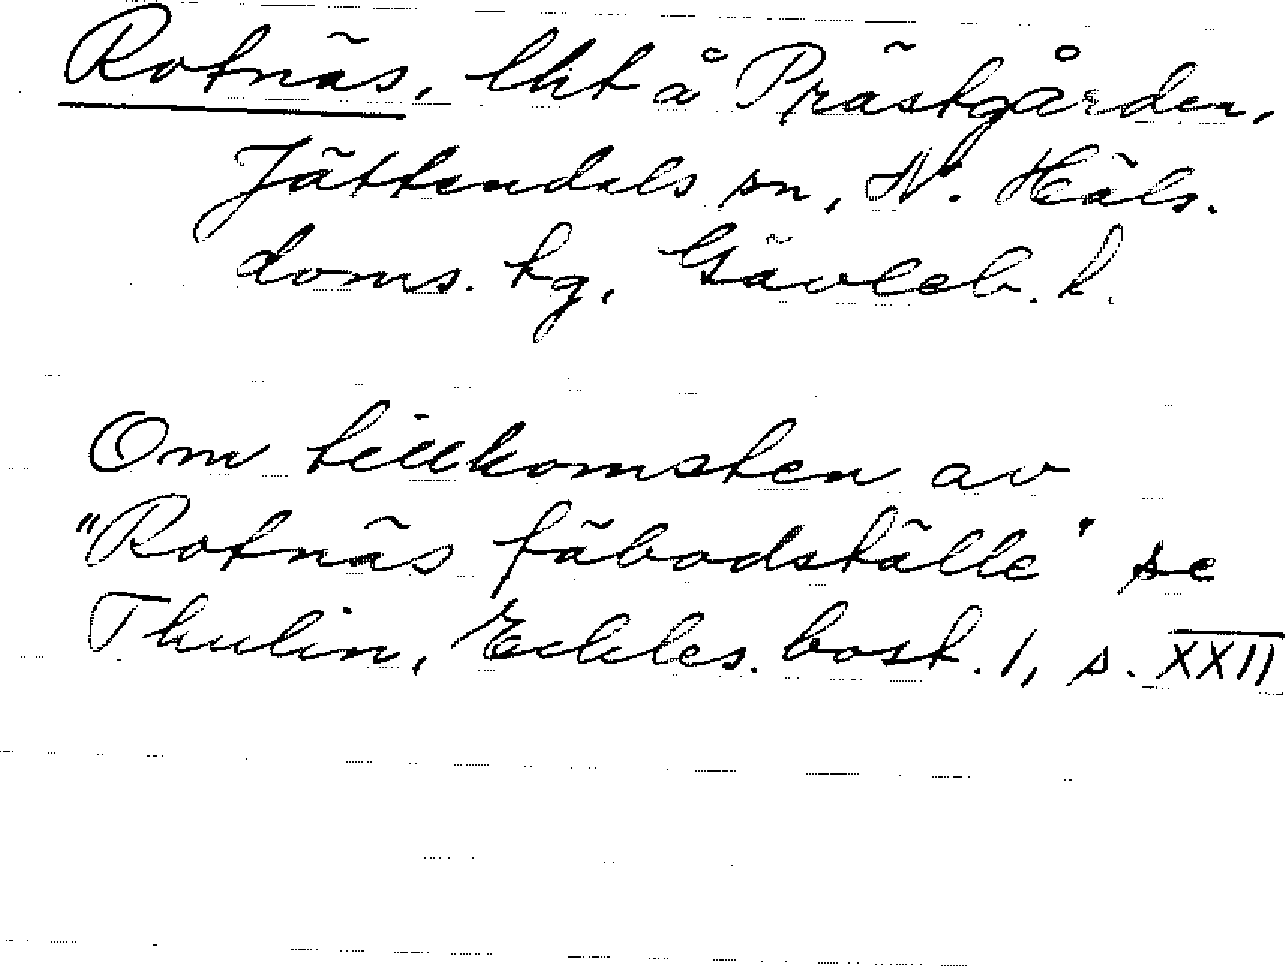 Rotnäs, lht å Prästgården,
Jättendals sn, N. Häls.
doms. tg, Gävleb. l.
Om tillkomsten av
"Rotnäs fäbodställe" se
Thulin, Eckles. bost. 1, s. XXII